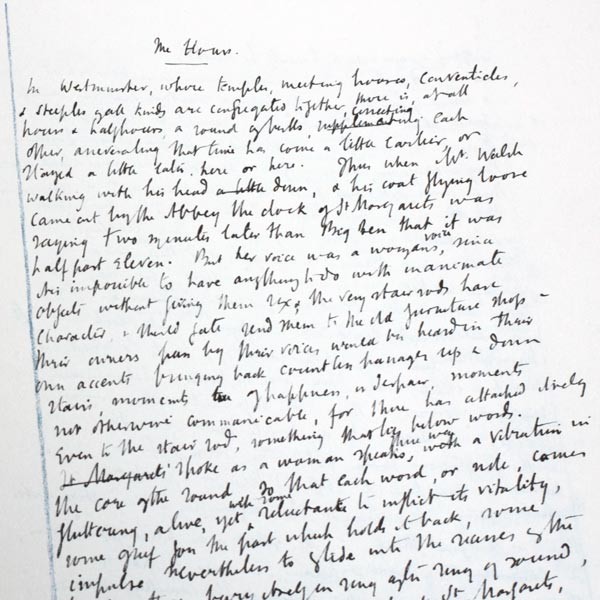 The Hours.
In Westminster, where temples, meeting houses, conventicles,
& steeples of all kinds are congregated together, there is, at all
hours & halfhours, a round of bells, correcting each
other, asseverating that time has come a little earlier, or
stayed a little later, here or here. Thus when Mr. Walsh
walking with his head a little down, & his coat flying loose
came out by the Abbey the clock of St Margarets was
saying two minutes later than Big Ben that it was
half past eleven. But her voice was a woman's voice, since
it is impossible to have anything to do with inanimate
objects without giving them sex; the very stair rods have
character, & should fate send them to the old furniture shops
their owners pass by their voices would be heard in their
own accents bringing back countless passages up & down
stairs, moments of happiness, or despair, moments
not otherwise communicable, for there has attached itself
Even to the stair rod, something that lies below words.
St Margarets spoke as a woman speaks, there was a vibration in
the core of the sound, so that each word, or note, comes
fluttering, alive, yet with some reluctance to inflict its vitality,
some grief for the past which holds it back, some
impulse nevertheless to glide into the recesses of the
ring after ring of sound,
St Margarets,